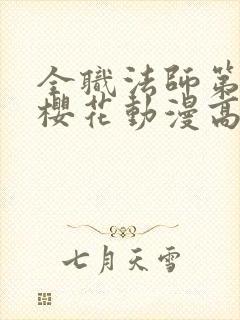 全職法師第
櫻花動漫高
七月天雪